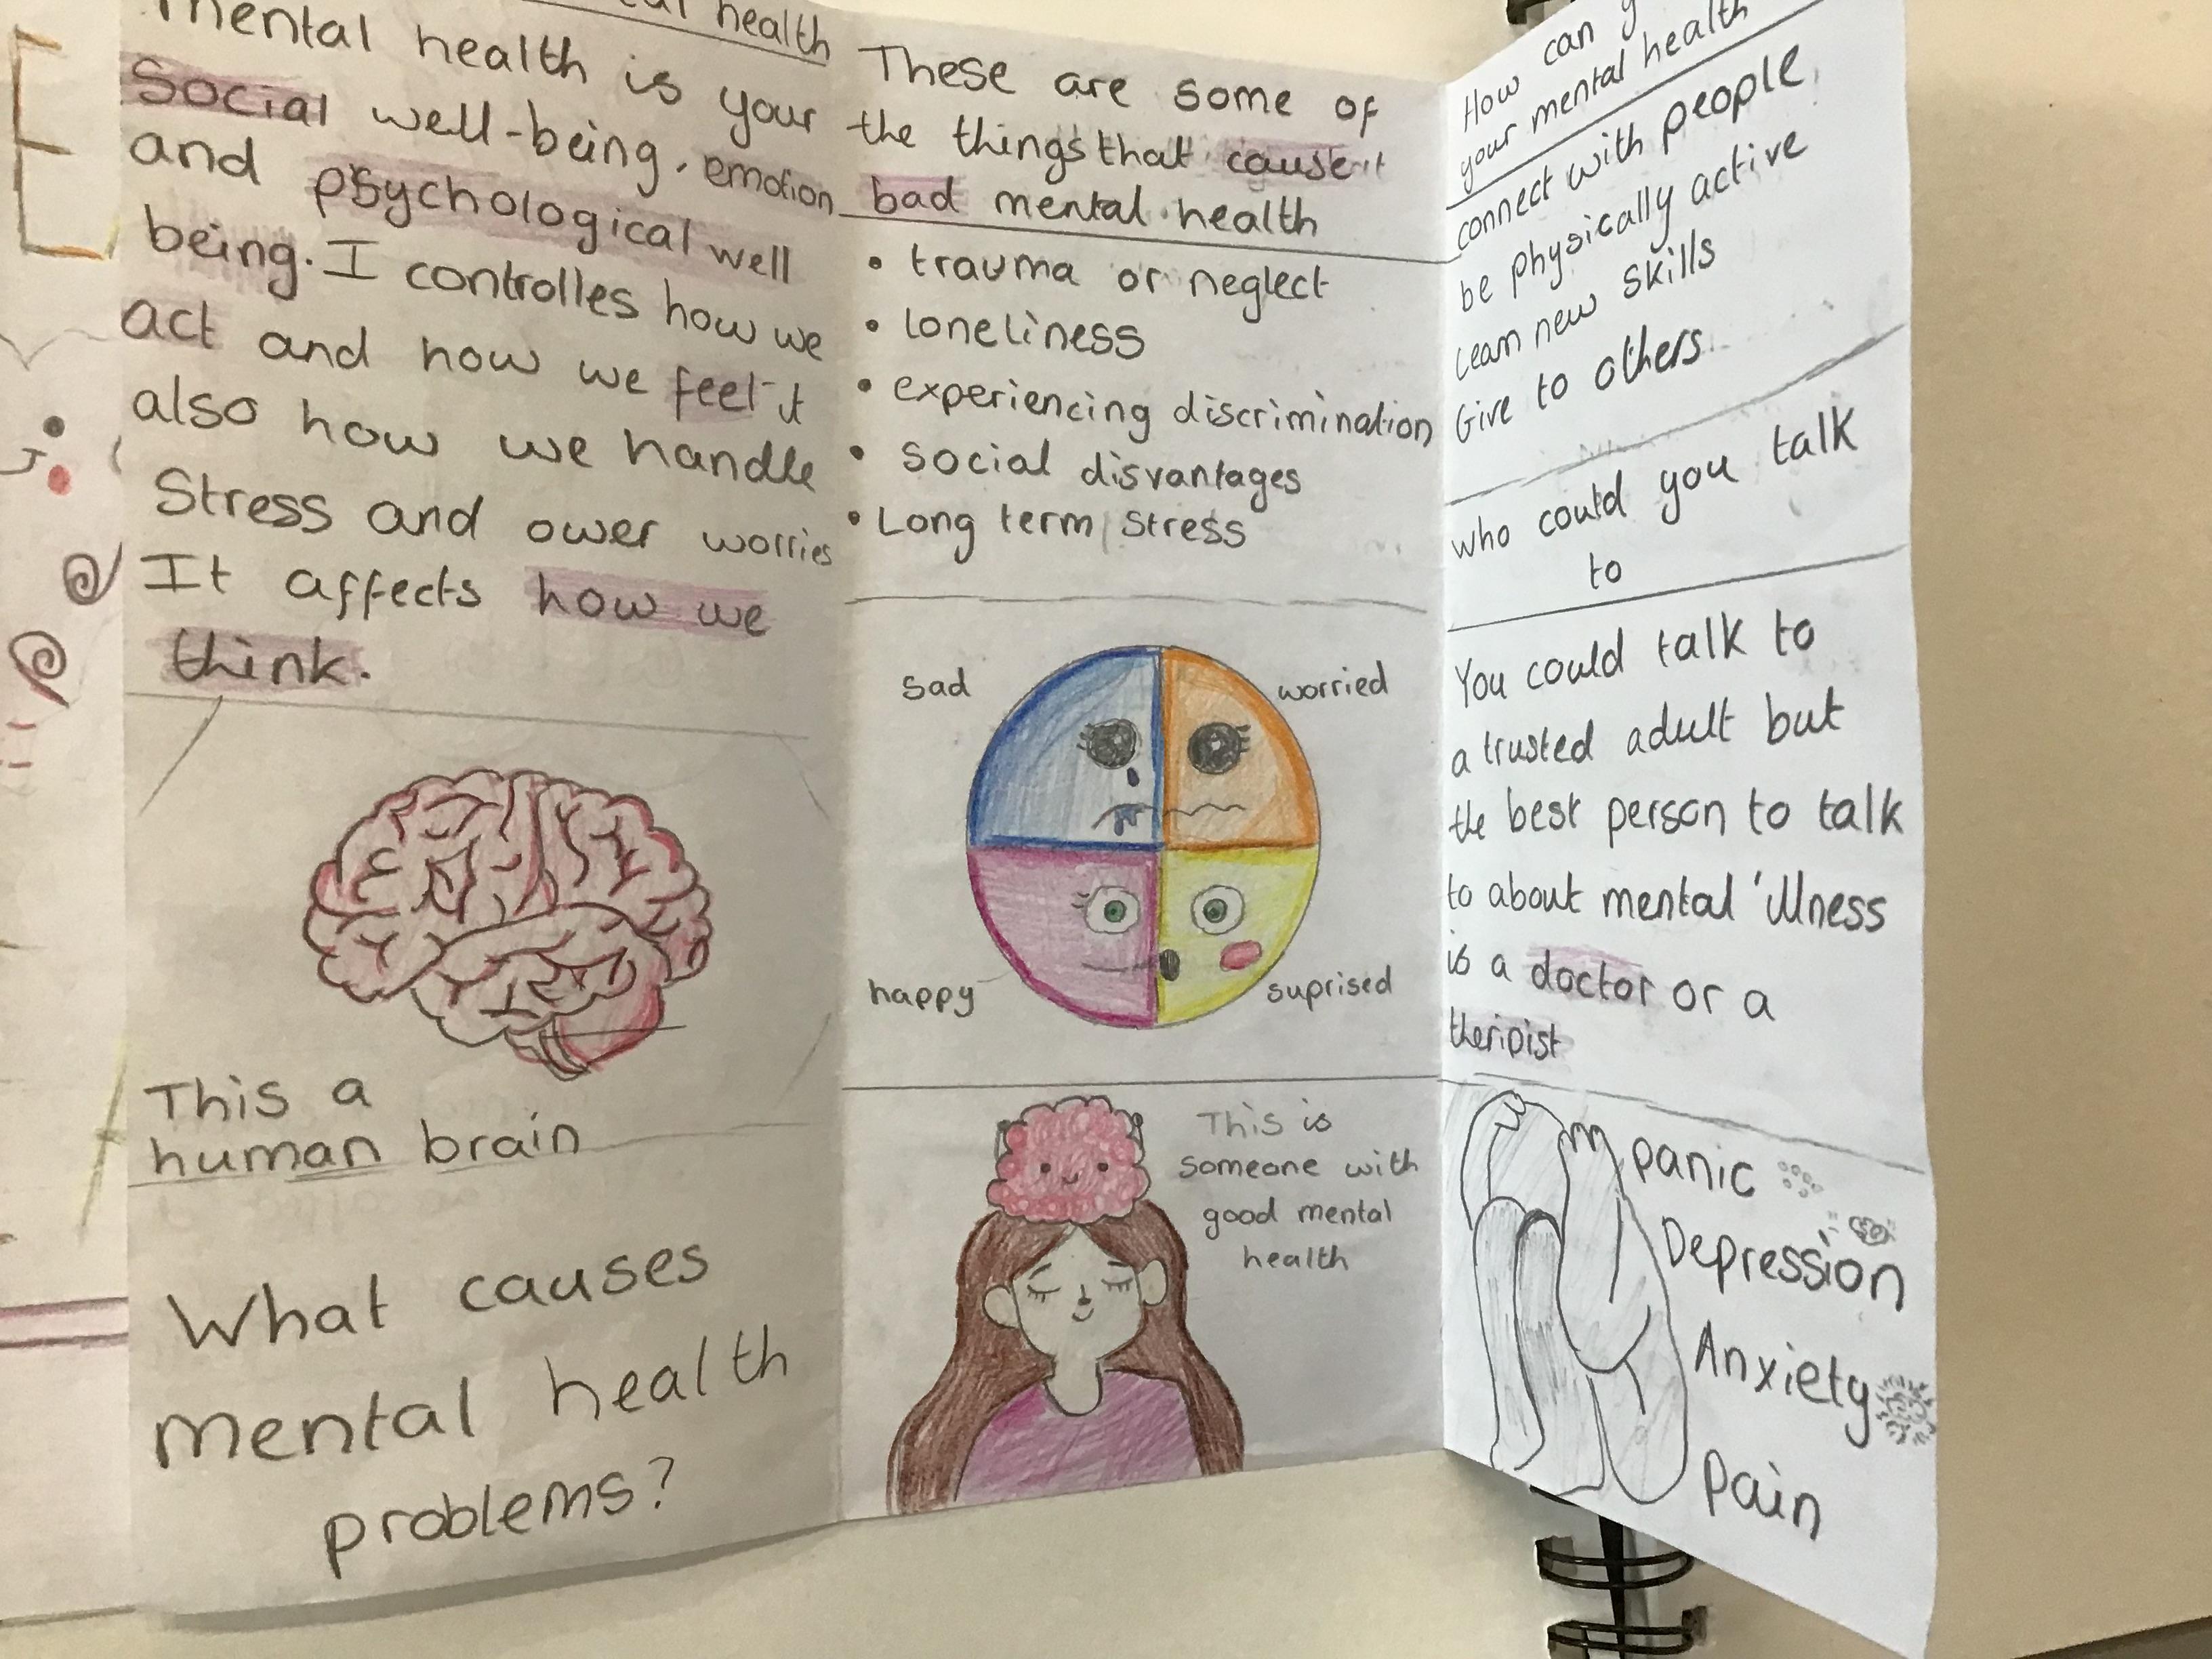 health
mental health is your
Social well-being, emotion
and psychological well
being. I controlles how we
act and how we feel it
also how we handle
Stress and ower worries
It affects how we
think.
This a
human brain
What causes
mental health
problems?
These are some of
the things that cause
bad mental health
• trauma or neglect
• loneliness
• experiencing discrimination
• social disvantages
• Long term stress
sad
worried
happy
suprised
This is
someone with
good mental
health
How can
your mental health
connect with people
be physically active
learn new skills
Give to others
who could you talk
to
You could talk to
a trusted adult but
the best person to talk
to about mental illness
is a doctor or a
theripist
panic
Depression
Anxiety
Pain